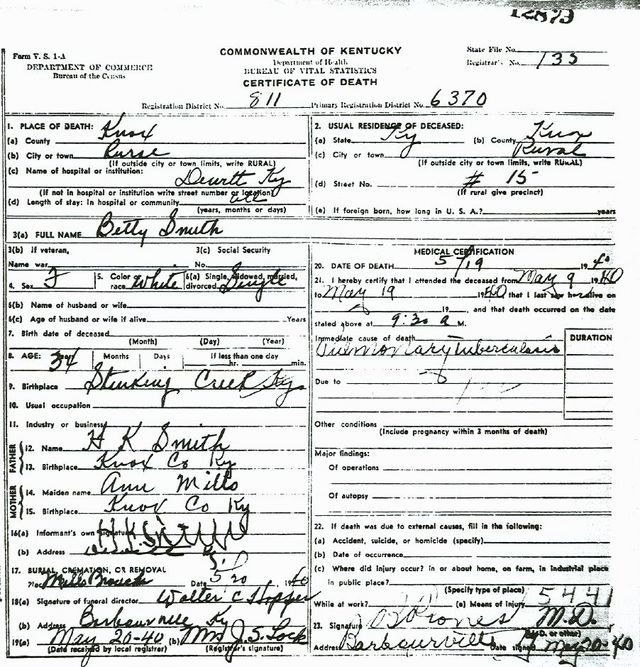 12873
Form V. S. 1-A
DEPARTMENT OF COMMERCE
Bureau of the Census
COMMONWEALTH OF KENTUCKY
Department of Health
BUREAU OF VITAL STATISTICS
CERTIFICATE OF DEATH
State File No.
Registrar's No. 135
Registration District No. 811 Primary Registration District No. 6370
1. PLACE OF DEATH:
(a) County Knox
(b) City or town
(If outside city or town limits, write RURAL)
(c) Name of hospital or institution:
Dewitt Ky
(If not in hospital or institution write street number or location)
(d) Length of stay: In hospital or community all
(years, months or days)
2. USUAL RESIDENCE OF DECEASED:
(a) State Ky (b) County Knox
(c) City or town Rural
(If outside city or town limits, write RURAL)
(d) Street No. # 15
(If rural give precinct)
(e) If foreign born, how long in U. S. A.? years
3(a) FULL NAME Betty Smith
3(b) If veteran, 3(c) Social Security
Name war No.
4. Sex F 5. Color race White 6(a) Single, widowed, married, divorced Single
6(b) Name of husband or wife
6(c) Age of husband or wife if alive Years
7. Birth date of deceased
(Month) (Day) (Year)
8. AGE: 34 Months Days If less than one day
hr. min.
9. Birthplace Stinking Creek Ky
10. Usual occupation
11. Industry or business
FATHER
12. Name H K Smith
13. Birthplace Knox Co Ky
MOTHER
14. Maiden name Ann Mills
15. Birthplace Knox Co Ky
16(a) Informant's own signature H.K. Smith
(b) Address
17. BURIAL, CREMATION, OR REMOVAL
Place Mills Date 5/20 40
18(a) Signature of funeral director Walter C Hopper
(b) Address Barbourville Ky
19(a) May 20-40 (b) Mrs J. S. Lock
(Date received by local registrar) (Registrar's signature)
MEDICAL CERTIFICATION
20. DATE OF DEATH 5/19 1940
21. I hereby certify that I attended the deceased from May 9 1940
to May 19 1940 that I last saw her alive on
19 , and that death occurred on the date
stated above at 9:30 a M.
Immediate cause of death DURATION
Pulmonary Tuberculosis
Due to
Other conditions
(Include pregnancy within 3 months of death)
Major findings:
Of operations
Of autopsy
22. If death was due to external causes, fill in the following:
(a) Accident, suicide, or homicide (specify)
(b) Date of occurrence
(c) Where did injury occur? in or about home, on farm, in industrial place
in public place?
(Specify type of place)
While at work? (e) Means of injury 5441
23. Signature Jones M.D.
(M.D. or other)
Address Barbourville Date signed May 20-40